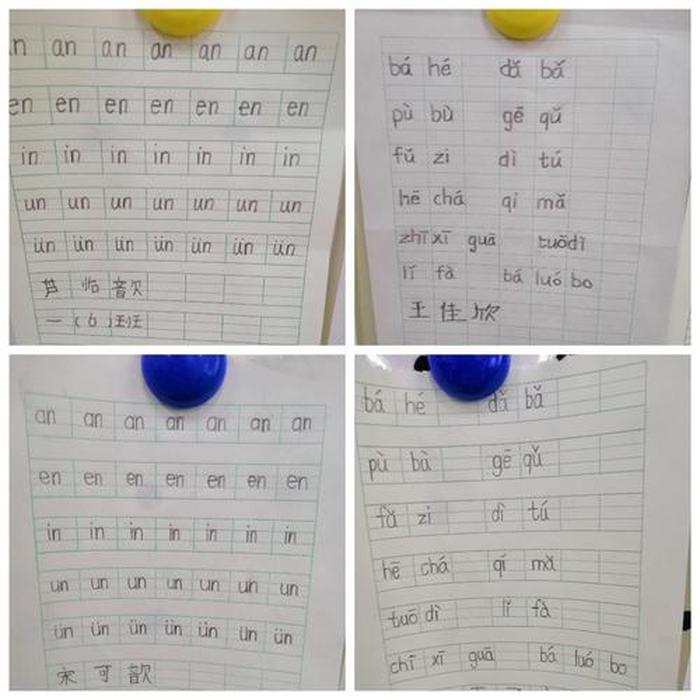 an an an an an an an
en en en en en en en
in in in in in in in
un un un un un un un
ün ün ün ün ün ün ün
芦 临 歆
一（6）班
bá hé dǎ bǎ
pù bù gē qǔ
fǔ zi dì tú
hē chá qí mǎ
zhī xī guā tuō dì
lǐ fà bá luó bo
王 佳 欣
an an an an an an an
en en en en en en en
in in in in in in in
un un un un un un un
ün ün ün ün ün ün ün
宋 可 歆
bá hé dǎ bǎ
pù bù gē qǔ
fǎ zi dì tú
hē chá qí mǎ
tuō dì lǐ fà
chī xī guā bá luó bo